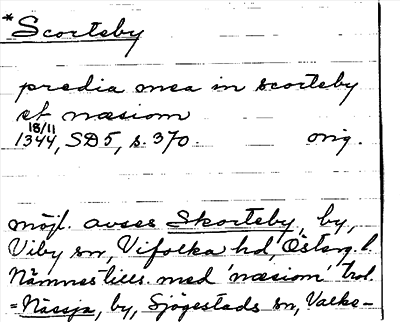 *Scorteby
predia mea in scorteby
et næsiom
18/11
1344, SD 5, s. 370. orig.
möjl. avses Skorteby, by,
Viby sn, Vifolka hd, Österg. l.
Nämnes tills. med 'næsiom' trol.
= Nässja, by, Sjögestads sn, Valke-